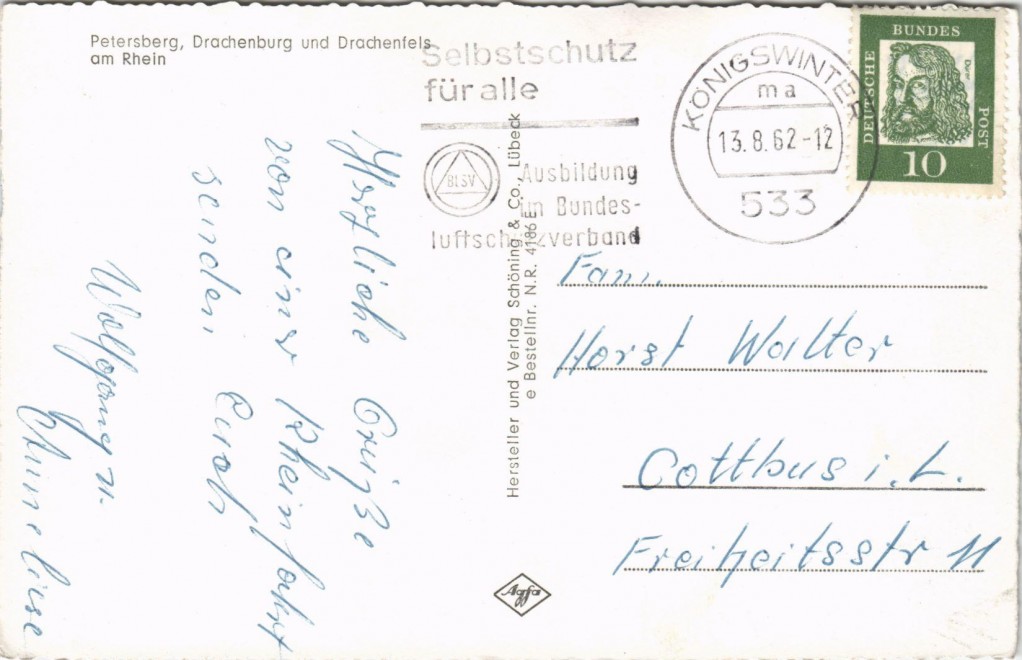 Petersberg, Drachenburg und Drachenfels
am Rhein
Selbstschutz
für alle
BLSV
Ausbildung
im Bundes-
luftschutzverband
KÖNIGSWINTER
ma
13.8.62-12
533
DEUTSCHE
BUNDES
POST
Dürer
10
Herzliche Grüße
von einer Rheinfahrt
senden Euch
Wolfgang u.
Anneliese
Hersteller und Verlag Schöning & Co., Lübeck
e Bestellnr. N.R. 4186 E
Fam.
Horst Walter
Cottbus i. L.
Freiheitsstr 11
Agfa